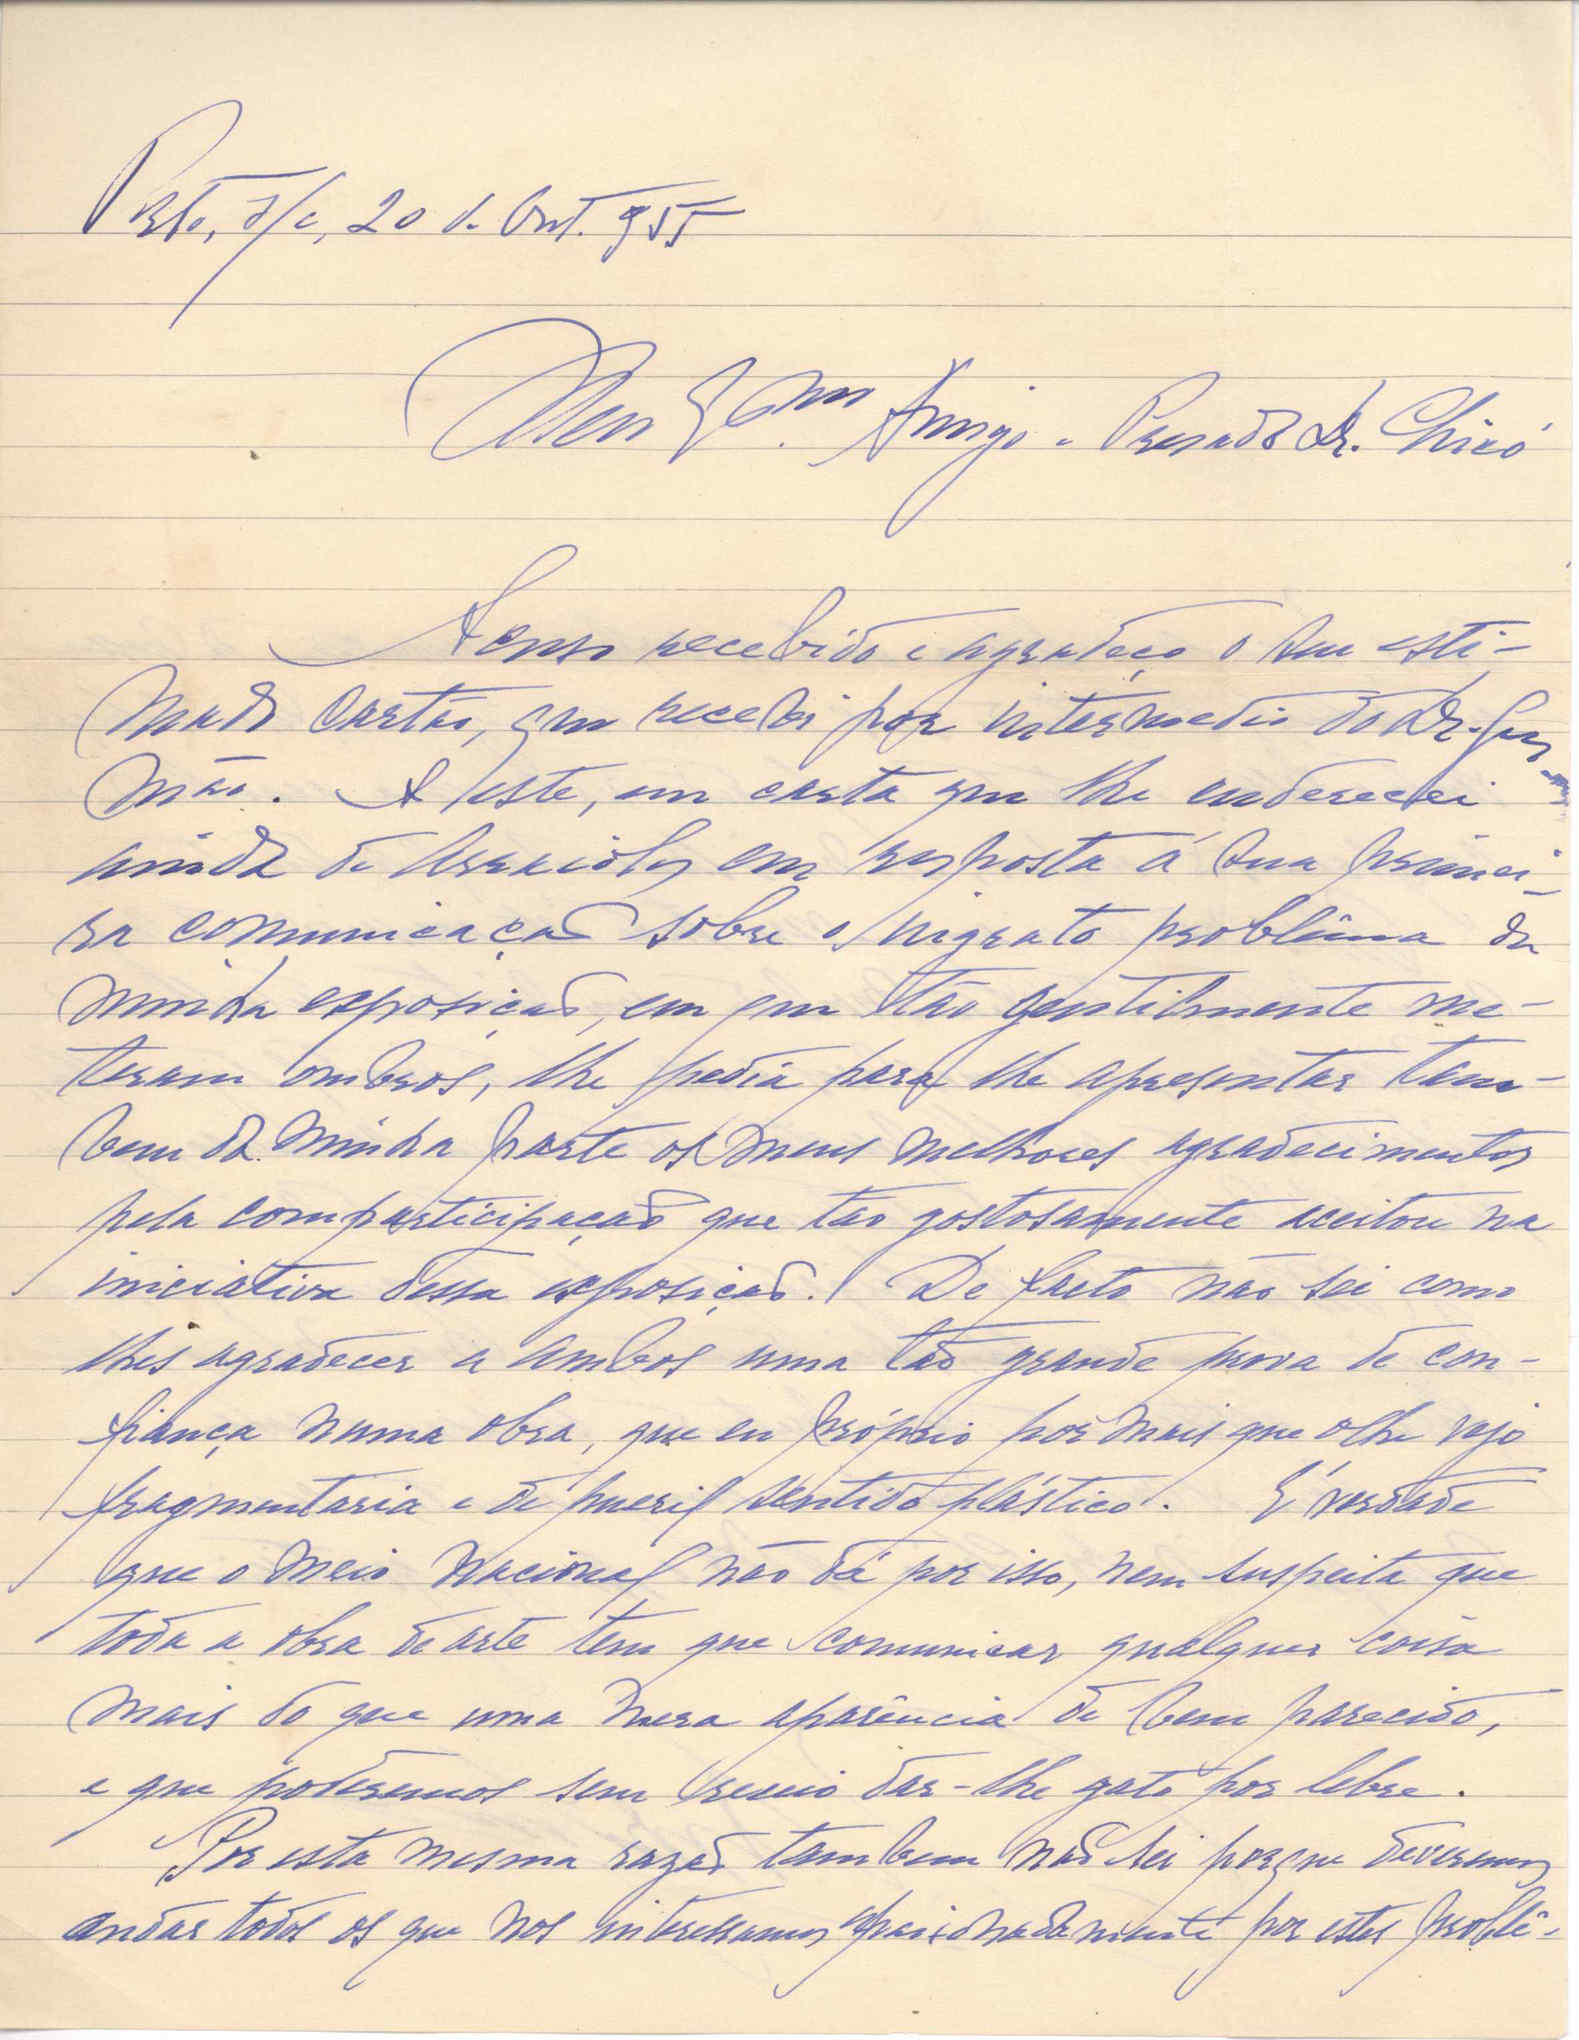 Porto, s/c, 20 d. Out. 955
Meu Exmo. Amigo e Presado Dr. Chicó
Acuso recebido e agradeço o seu esti-
mado cartão, que recebi por intermedio do Dr. Gus
mão. A este, em carta que lhe enderecei
ainda de Arraiolos em resposta á sua primei-
ra comunicação sobre o ingrato problêma da
minha exposição, em que tão gentilmente me-
teram ombros, lhe pedia para lhe apresentar tam-
bem da minha parte os meus melhores agradecimentos
pela comparticipação que tão gostosamente aceitou na
iniciativa dessa exposição. De facto não sei como
lhes agradecer a ambos uma tão grande prova de con-
fiança numa obra, que eu próprio por mais que olhe vejo
fragmentaria e de pueril sentido plástico. É verdade
que o meio nacional não dá por isso, nem suspeita que
toda a obra de arte tem que comunicar qualquer coisa
mais do que uma mera aparência de bem parecido,
e que poderemos sem receio dar-lhe gato por lebre.
Por esta mesma razão tambem não sei porque deveremos
andar todos os que nos interessamos apaixonadamente por estes problê-